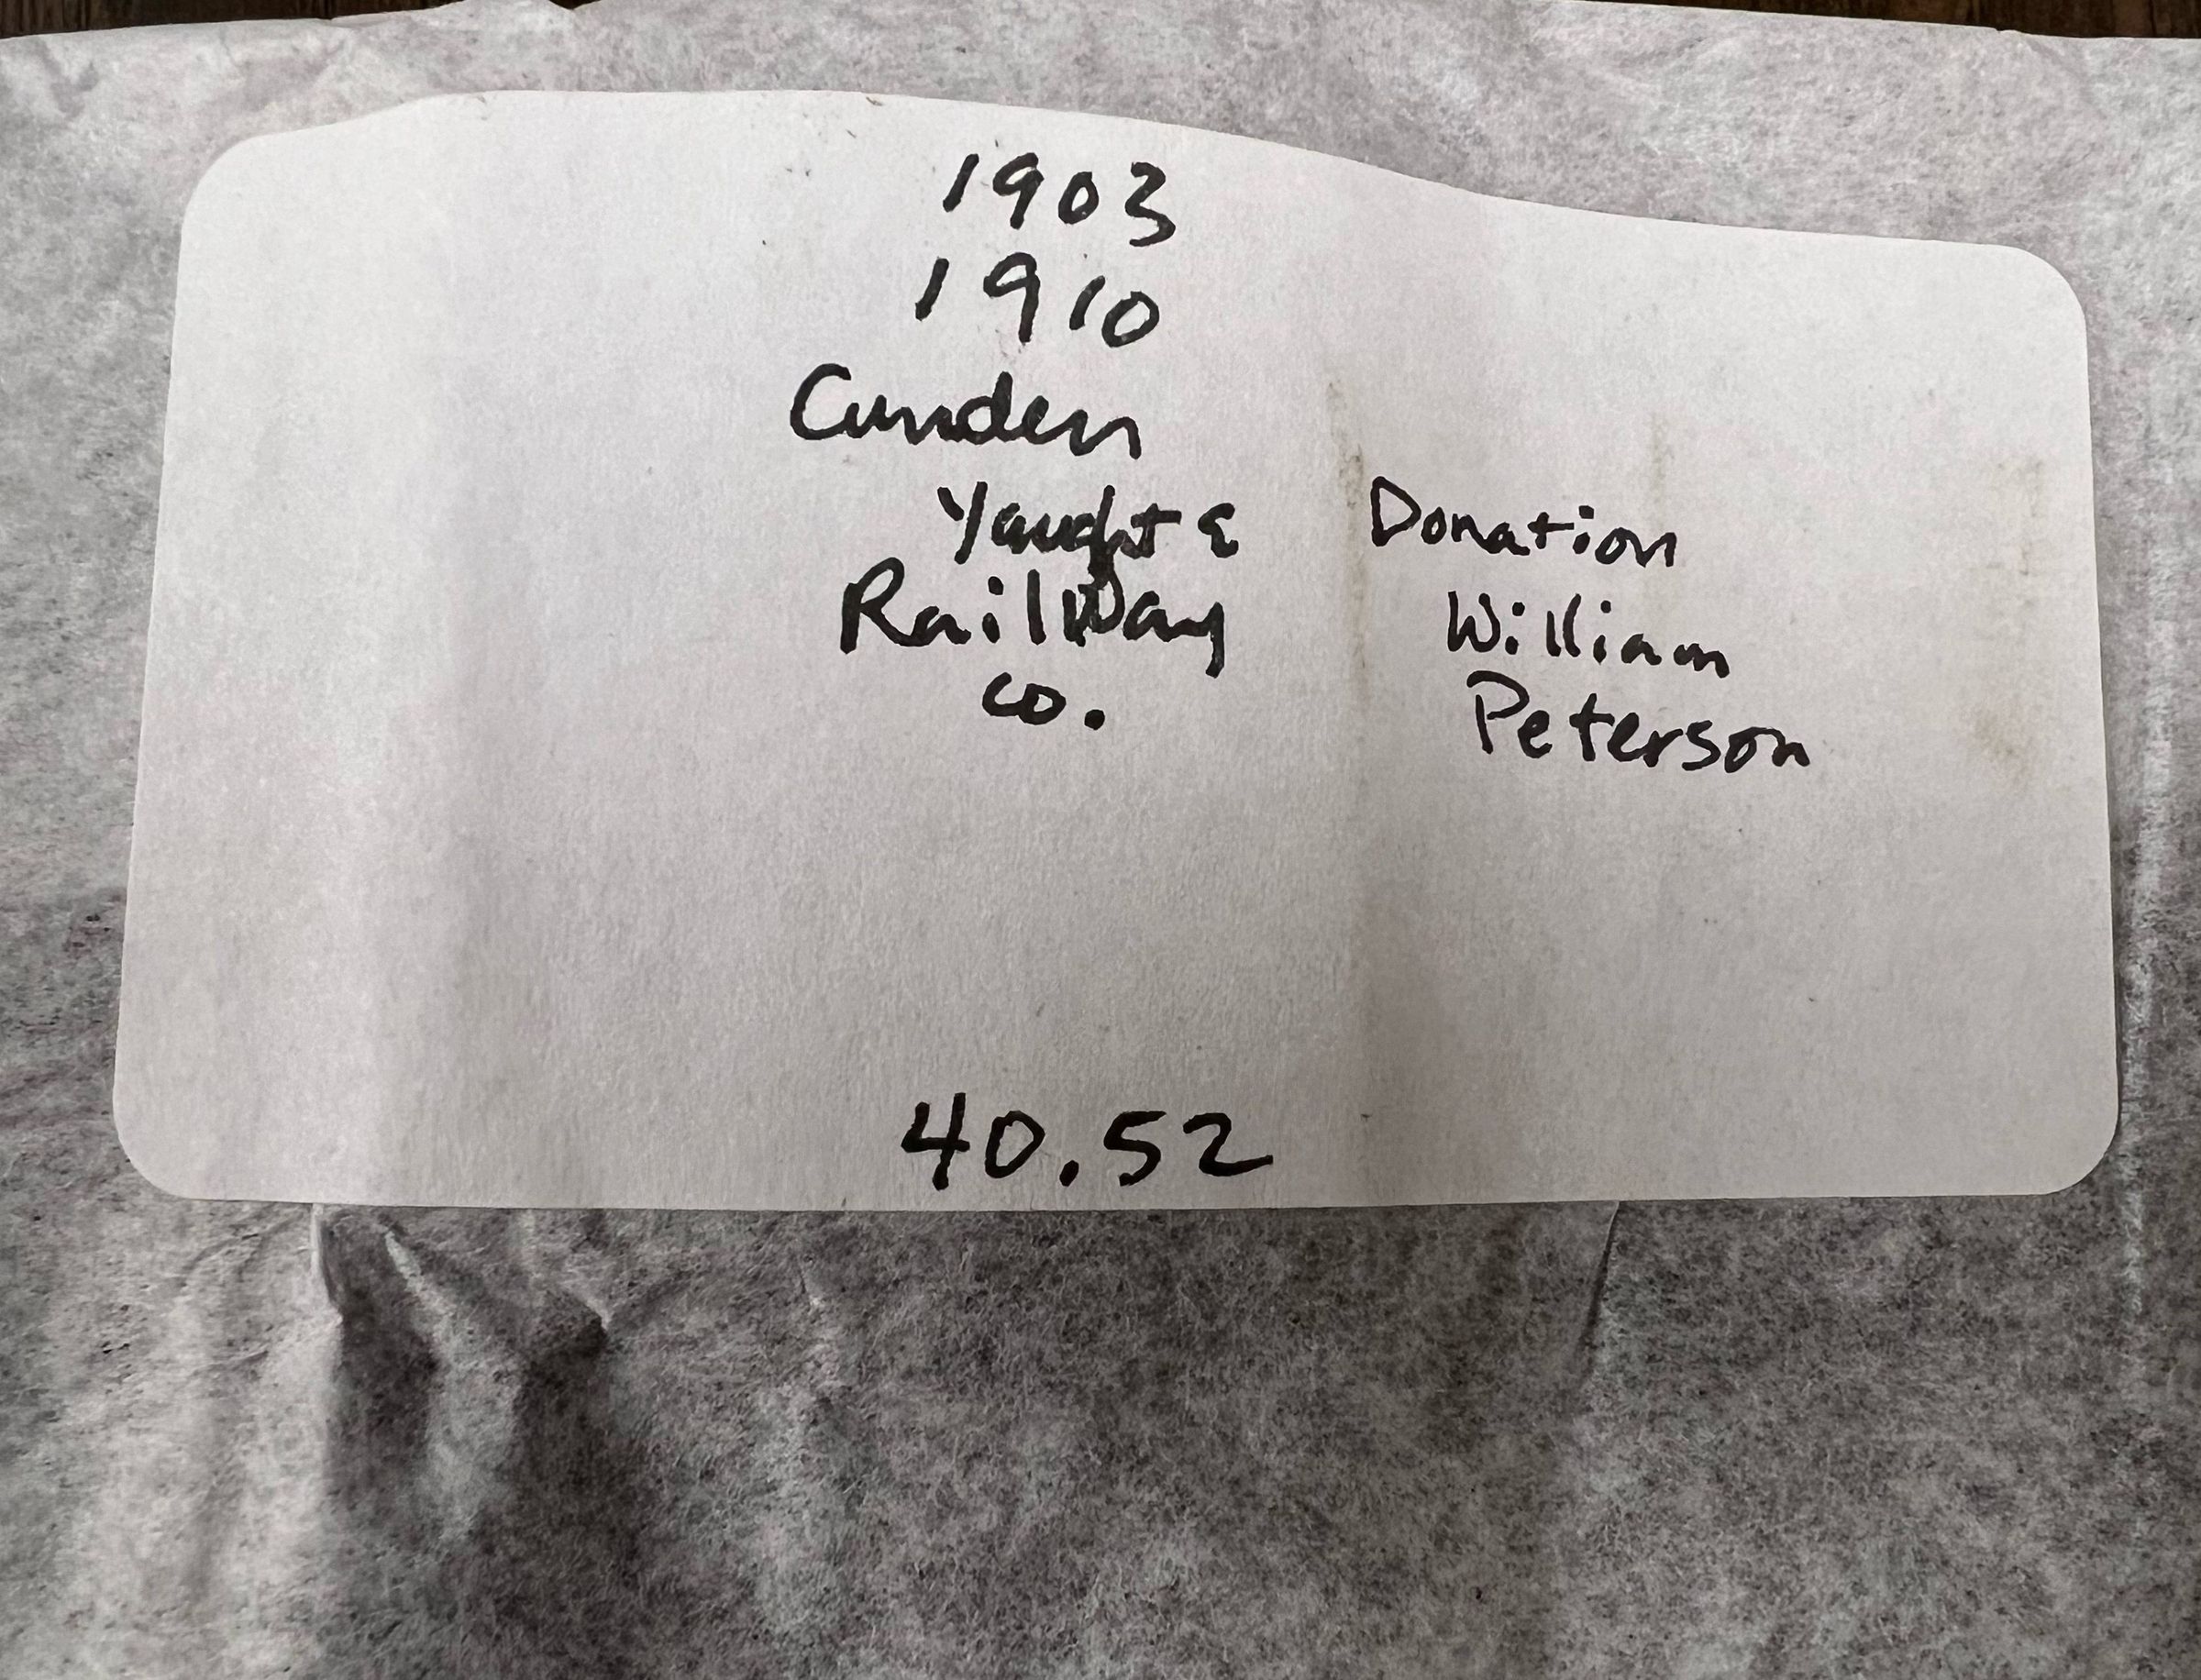 1903
1910
Camden
Yaught &
Railway
co.
Donation
William
Peterson
40.52